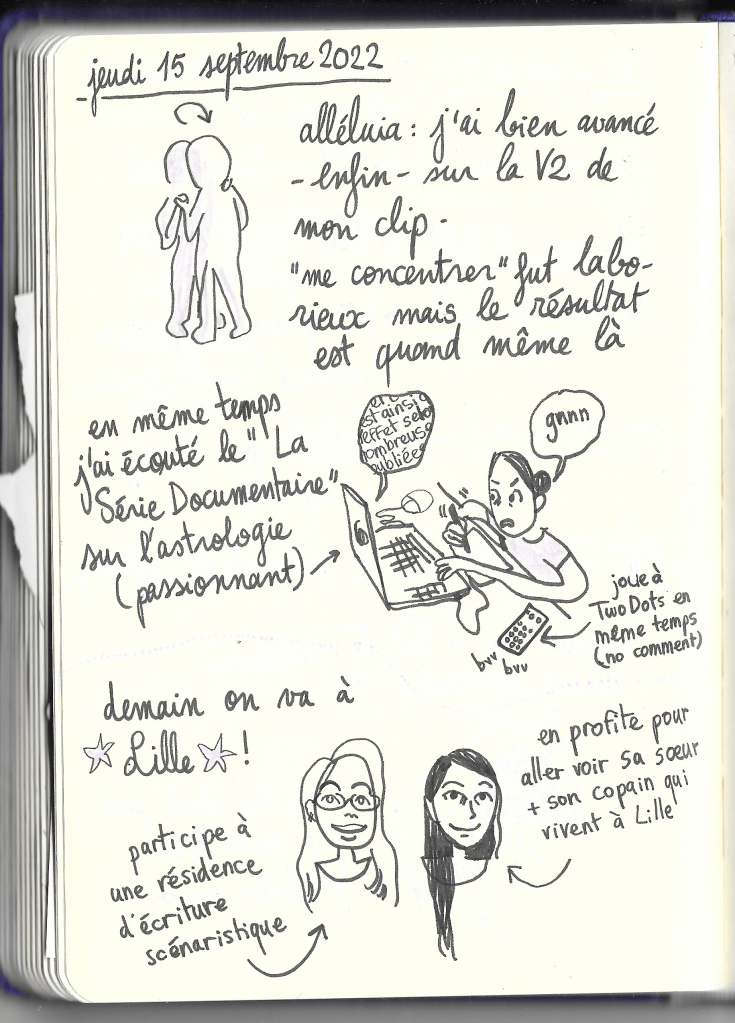 jeudi 15 septembre 2022
alléluia : j'ai bien avancé
- enfin - sur la V2 de
mon clip.
"me concentrer" fut labo-
rieux mais le résultat
est quand même là
en même temps
j'ai écouté le "La
Série Documentaire"
sur l'astrologie
(passionnant)
st ainsi
effet selo
nombreuse
publiée
gnnn
joue à
TwoDots en
même temps
(no comment)
bvv
bvv
demain on va à
Lille !
en profite pour
aller voir sa soeur
+ son copain qui
vivent à Lille
participe à
une résidence
d'écriture
scénaristique